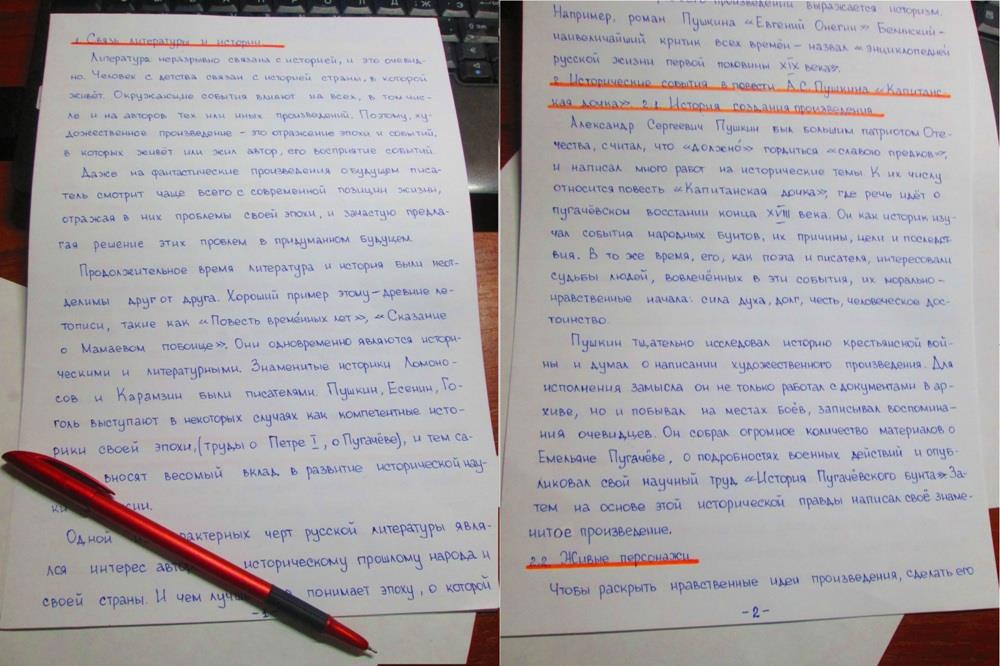 1. Связь литературы и истории.
Литература неразрывно связана с историей, и это очевид-
но. Человек с детства связан с историей страны, в которой
живёт. Окружающие события влияют на всех, в том чис-
ле и на авторов тех или иных произведений. Поэтому, ху-
дожественное произведение - это отражение эпохи и событий,
в которых живёт или жил автор, его восприятие событий.
Даже на фантастические произведения о будущем писа-
тель смотрит чаще всего с современной позиции жизни,
отражая в них проблемы своей эпохи, и зачастую предла-
гая решение этих проблем в придуманном будущем.
Продолжительное время литература и история были неот-
делимы друг от друга. Хороший пример этому - древние ле-
тописи, такие как «Повесть временных лет», «Сказание
о Мамаевом побоище». Они одновременно являются истори-
ческими и литературными. Знаменитые историки Ломоно-
сов и Карамзин были писателями. Пушкин, Есенин, Го-
голь выступают в некоторых случаях как компетентные исто-
рики своей эпохи, (труды о Петре I, о Пугачёве), и тем са-
вносят весомый вклад в развитие исторической нау-
ки
Одной характерных черт русской литературы явля-
лся интерес историческому прошлому народа и
своей страны. И чем понимает эпоху, о которой
- 1 -
произведении выражается историзм.
Например, роман Пушкина «Евгений Онегин» Белинский -
наивеличайший критик всех времён - назвал «энциклопедией
русской жизни первой половины XIX века».
2. Исторические события в повести А.С. Пушкина «Капитанс-
кая дочка». 2.1. История создания произведения.
Александр Сергеевич Пушкин был большим патриотом Оте-
чества, считал, что «должно» гордиться «славою предков»,
и написал много работ на исторические темы. К их числу
относится повесть «Капитанская дочка», где речь идёт о
пугачёвском восстании конца XVIII века. Он как историк изу-
чал события народных бунтов, их причины, цели и последст-
вия. В то же время, его, как поэта и писателя, интересовали
судьбы людей, вовлечённых в эти события, их морально -
нравственные начала: сила духа, долг, честь, человеческое дос-
тоинство.
Пушкин тщательно исследовал историю крестьянской вой-
ны и думал о написании художественного произведения. Для
исполнения замысла он не только работал с документами в ар-
хиве, но и побывал на местах боёв, записывал воспомина-
ния очевидцев. Он собрал огромное количество материалов о
Емельяне Пугачёве, о подробностях военных действий и опуб-
ликовал свой научный труд «История Пугачёвского бунта». За-
тем на основе этой исторической правды написал своё знаме-
нитое произведение.
2.2. Живые персонажи
Чтобы раскрыть нравственные идеи произведения, сделать его
- 2 -